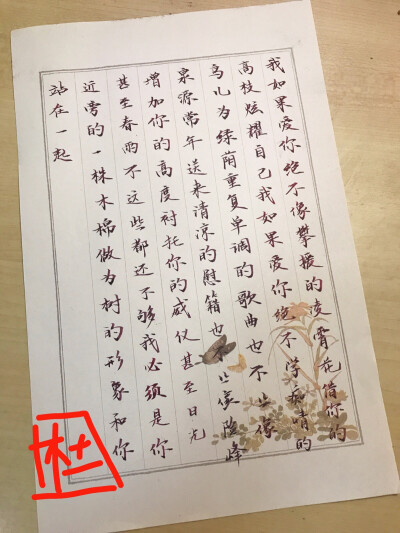 我如果爱你绝不像攀援的凌霄花借你的
高枝炫耀自己我如果爱你绝不学痴情的
鸟儿为绿荫重复单调的歌曲也不止像
泉源常年送来清凉的慰箱也不止像险峰
增加你的高度衬托你的威仪甚至日光
甚至春雨不这些都还不够我必须是你
近旁的一株木棉做为树的形象和你
站在一起